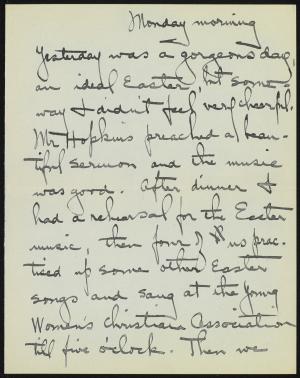 Monday morning
Yesterday was a gorgeous day,
an ideal Easter, but some-
way I didn't feel very cheerful.
Mr Hopkins preached a beau-
tiful sermon and the music
was good. After dinner I
had a rehearsal for the Easter
music, then four of us prac-
ticed up some other Easter
songs and sang at the Young
Women's Christian Association
till five o'clock. Then we